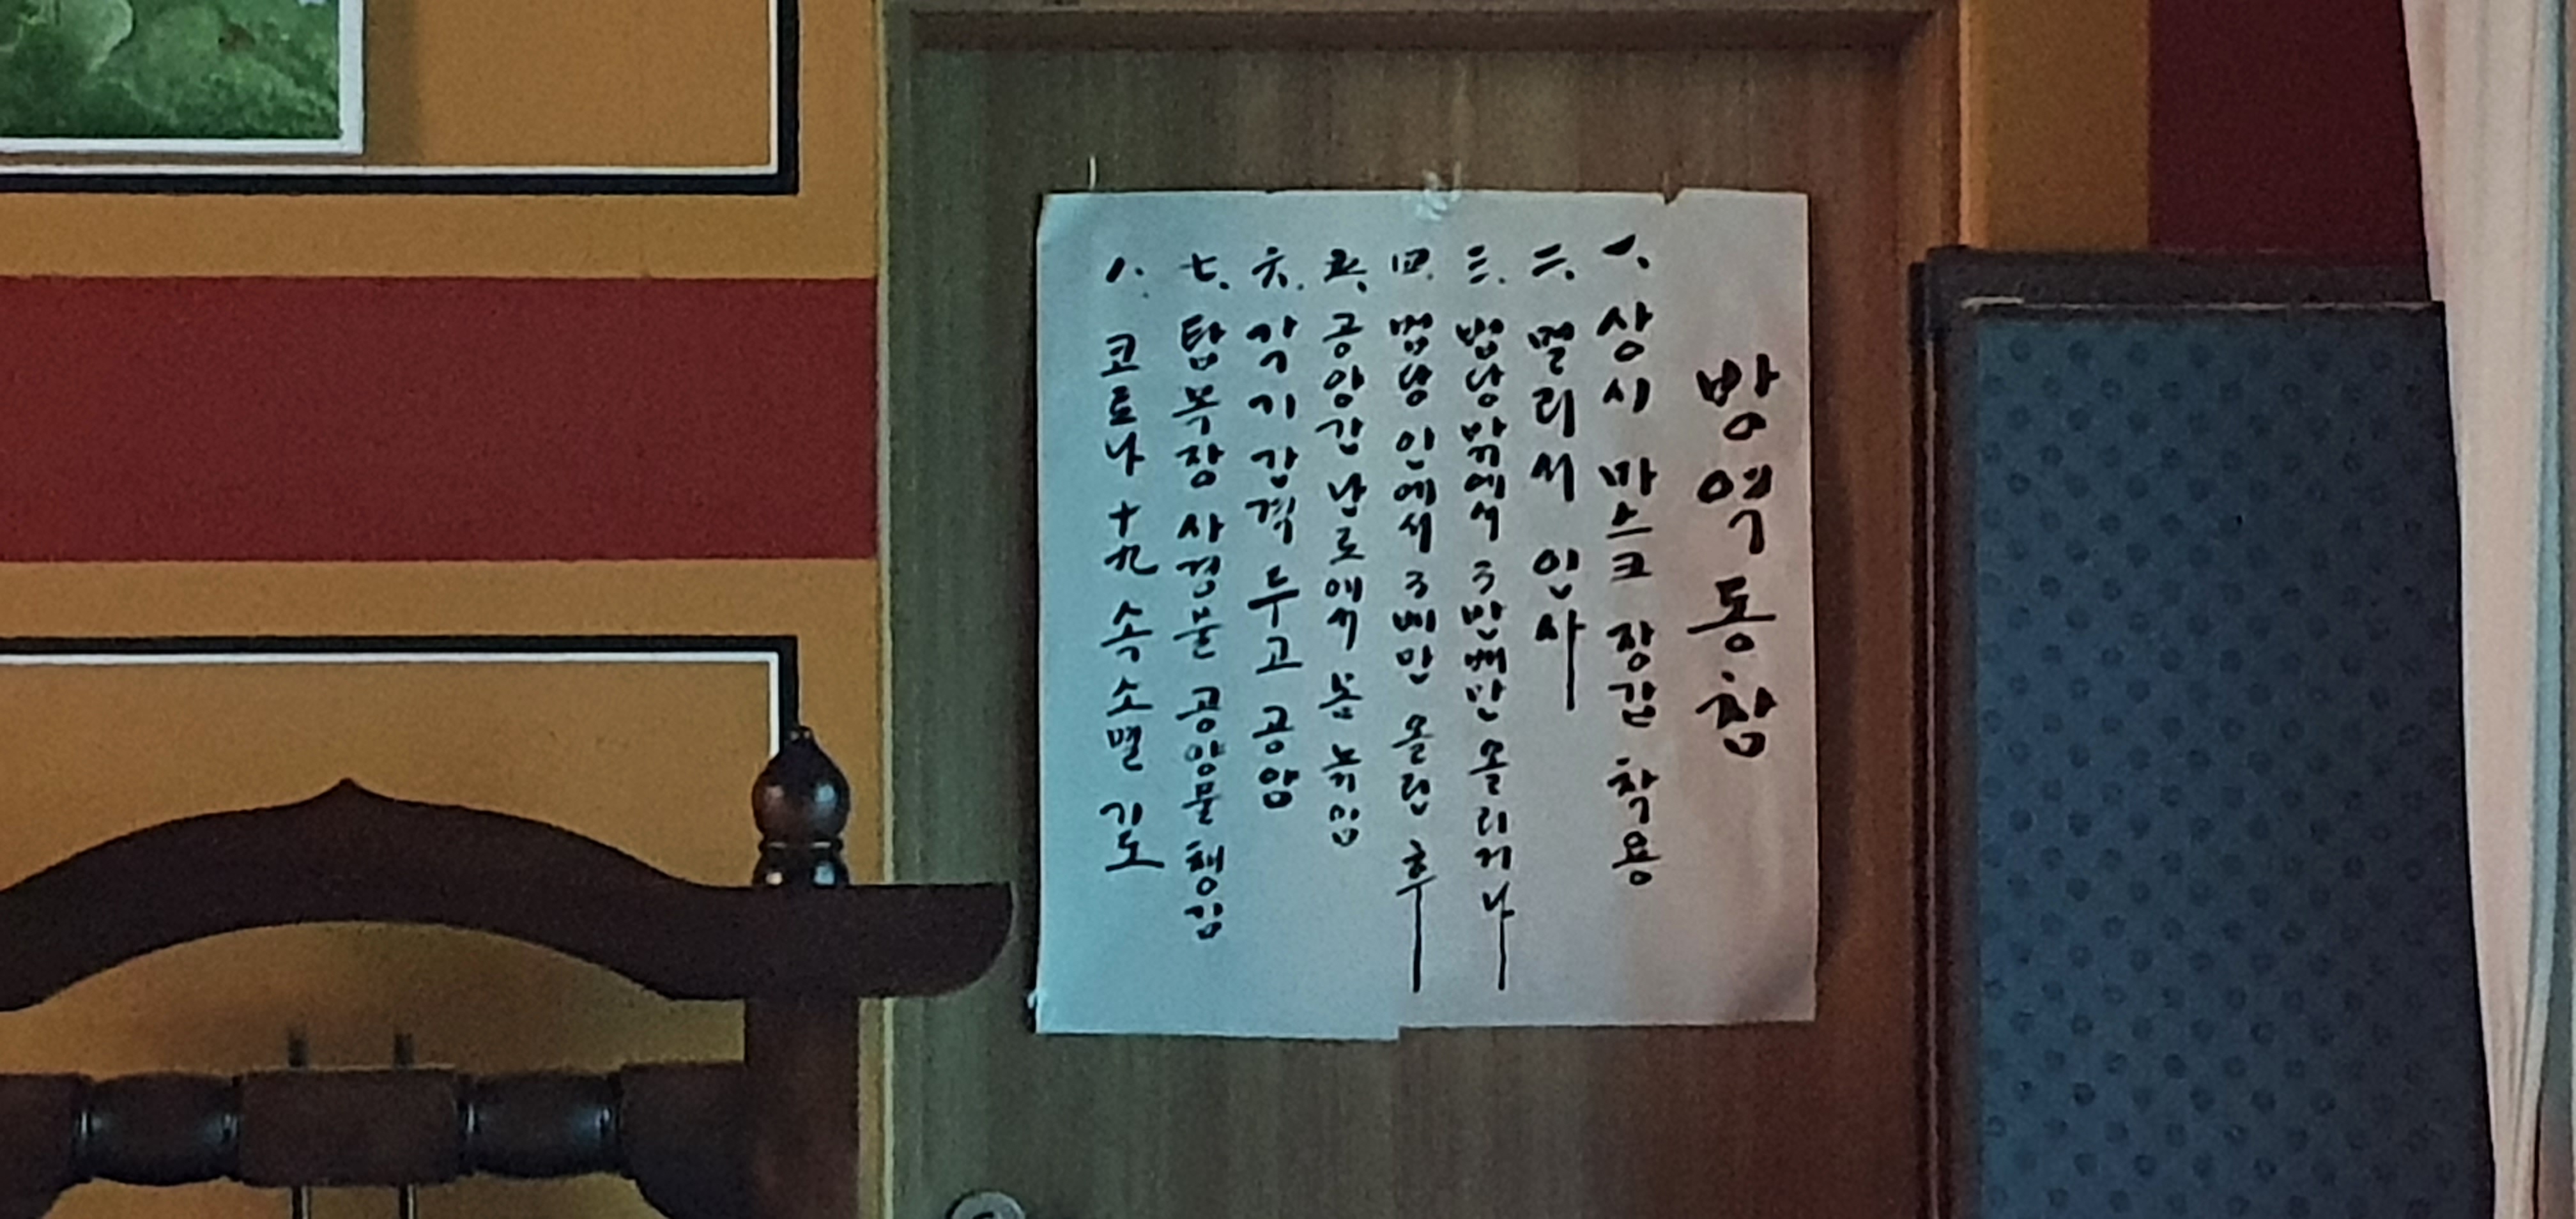 방역동참
一. 상시 마스크 장갑 착용
二. 멀리서 인사
三. 법당 밖에서 3만배만 올리거나
四. 법당 안에서 3배만 올린 후
五. 공양간 난로에서 몸 녹임
六. 각기 간격 두고 공양
七. 탑 목장 사경물 공양물 챙김
八. 코로나 十九 속 소멸 기도